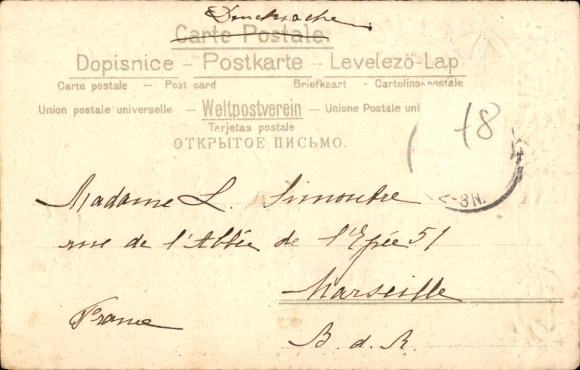 Drucksache
Carte Postale
Dopisnice – Postkarte – Levelező-Lap
Carte postale – Post card Briefkaart - Cartolina postale
Union postale universelle – Weltpostverein – Unione Postale
Tarjetas postale
ОТКРЫТОЕ ПИСЬМО.
48
-8N.
Madame L.
rue de l'Abbée de l'Epée 51
Marseille
France
B. d. R.